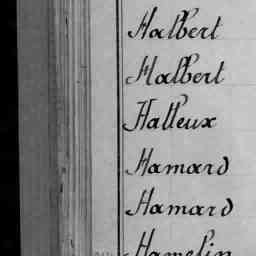 Halbert
Halbert
Halleux
Hamard
Hamard
Hamelin